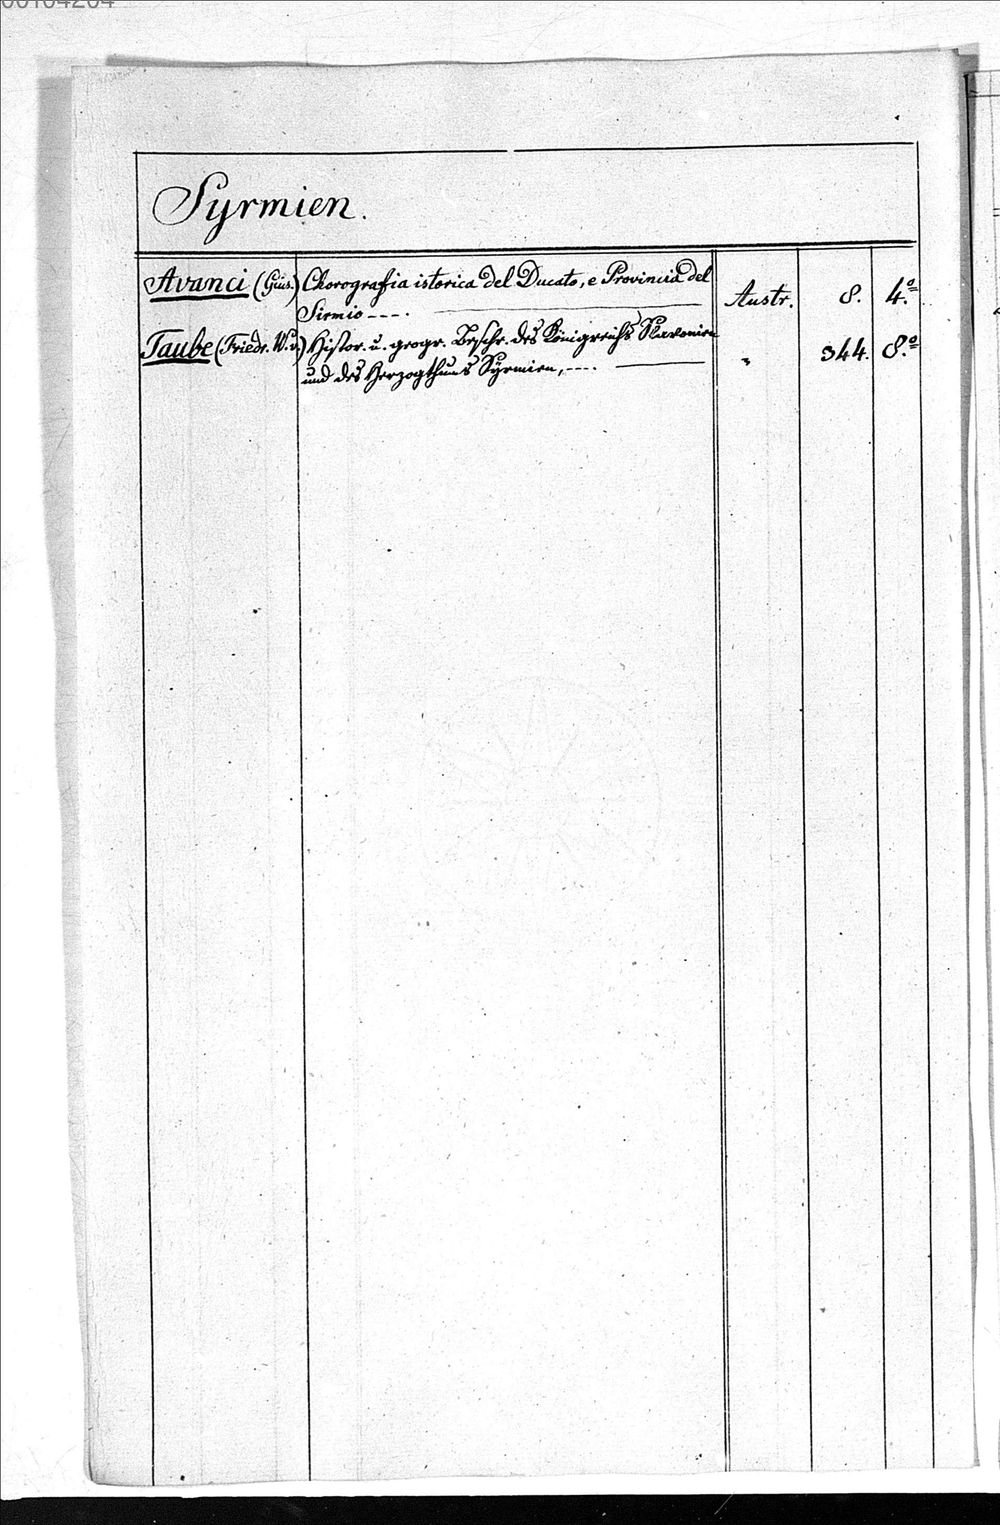 Syrmien.
Avanci (Gius.) Chorografia istorica del Ducato, e Provincia del
Sirmio ---- . Austr. 8. 4.º
Taube (Friedr. W. v.) Histor. u. geogr. Beschr. des Königreichs Slavonien
und des Herzogthums Syrmien, ---- . " 344. 8.º